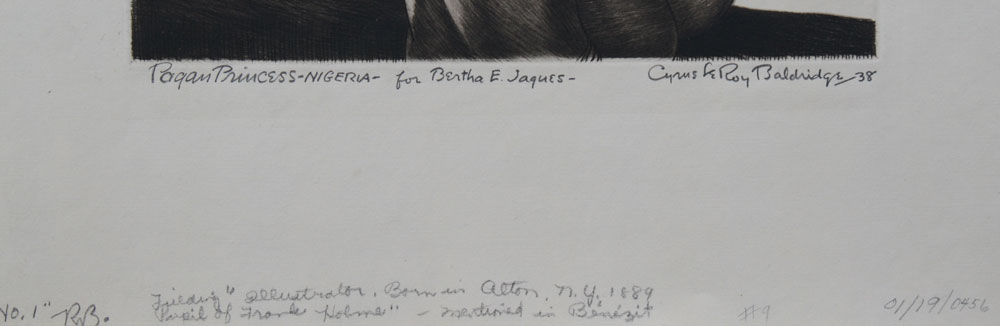 Pagan Princess-NIGERIA- for Bertha E. Jaques- Cyrus LeRoy Baldridge 38
Fielding" Illustrator. Born in Alton, N.Y. 1889
No. 1" RB. Pupil of Frank Holme" - mentioned in Benézit #9 01/19/0456